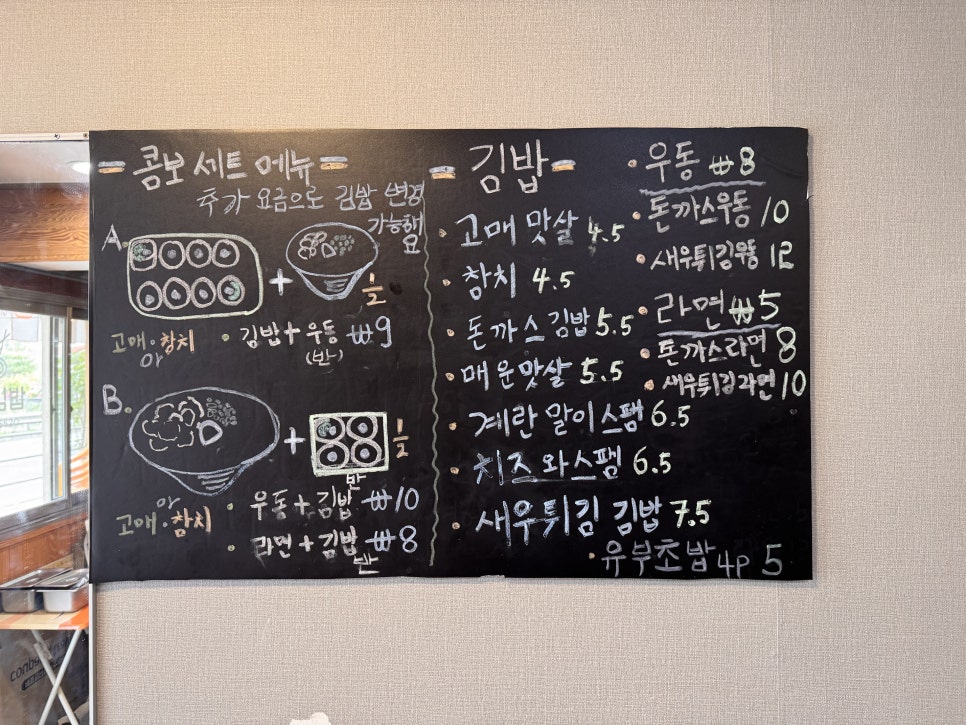 콤보 세트 메뉴
추가 요금으로 김밥 변경
가능해
요
A.
+
1/2
고매 · 참치
야
· 김밥 + 우동 ₩9
(반)
B.
+
1/2
반
야
고매 · 참치
· 우동 + 김밥 ₩10
· 라면 + 김밥 ₩8
반
김밥
· 고매 맛살 4.5
· 참치 4.5
· 돈까스김밥 5.5
· 매운맛살 5.5
· 계란말이스팸 6.5
· 치즈와스팸 6.5
· 새우튀김 김밥 7.5
· 유부초밥 4P 5
· 우동 ₩8
· 돈까스우동 10
· 새우튀김우동 12
· 라면 ₩5
· 돈까스라면 8
· 새우튀김라면 10